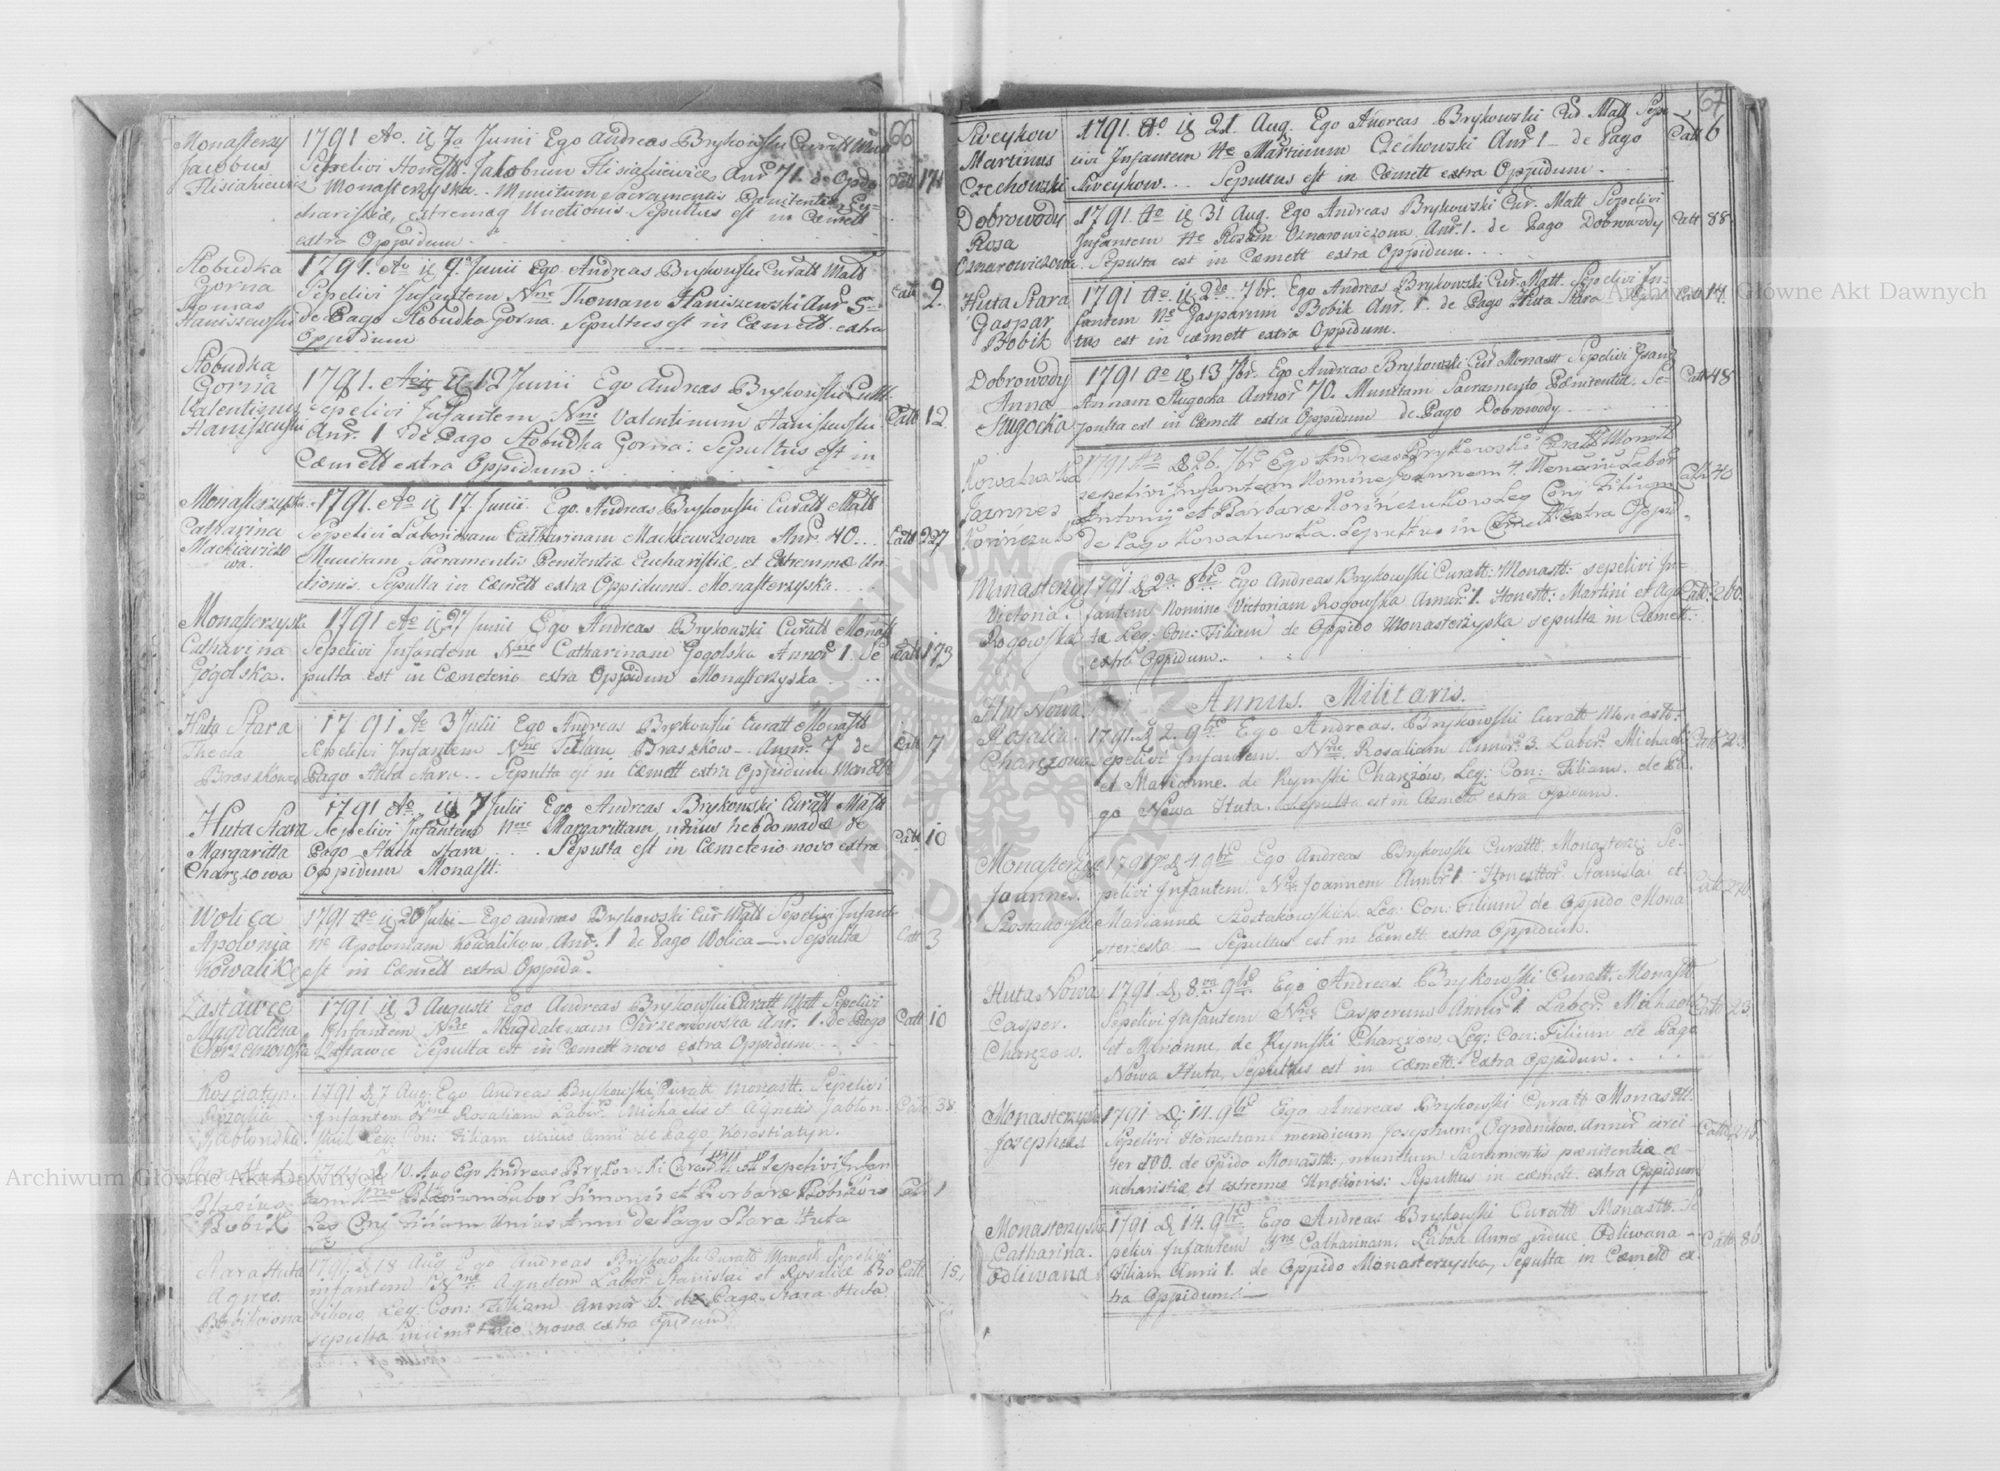 66
Monasterzy
Jacobus
Hisiakiewicz
1791 Ao. 7a Junii Ego Andreas Brykowski Curatt
Sepelivi Honestt. Jakobum Hisiakiewicz Anr. 71. de Opdo
Monasterzyska. Munitum Sacramentis Penitentiae Eu-
charistiae, extremaq Unctionis. Sepultus est in Caemett
extra Oppidum.
Catt 171
Slobudka
Gorna
Tomas
Haniszewski
1791. Ao 9a Junii Ego Andreas Brykowski Curatt Matt
Sepelivi Infantem Nne Thomam Haniszewski Anr. 5
de Pago Slobudka Gorna. Sepultus est in Caemett. extra
Oppidum
Catt 9.
Slobudka
Gorna
Valentinus
Haniszewski
1791. 12 Junii Ego Andreas Brykowski Curatt
sepelivi Infantem Nne Valentinum Haniszewski
Anr. 1 de Pago Slobudka Gorna: Sepultus est in
Caemett extra Oppidum.
Catt 12
Monasterzyska
Catharina
Mackiewiczo
wa.
1791. Ao 17. Junii. Ego Andreas Brykowski Curatt Matt
Sepelivi Laboriosam Catharinam Mackiewiczowa Anr. 40...
Munitam Sacramentis Penitentiae Eucharistiae, et Extremae Un-
ctionis. Sepulta in Caemett extra Oppidum Monasterzyska.
Catt 227
Monasterzysk
Catharina
Gogolska.
1791 Ao 27 Junii Ego Andreas Brykowski Curatt Monast
Sepelivi Infantem Nne Catharinam Gogolska Annor 1. Se
pulta est in Caemeterio extra Oppidum Monasterzyska
Catt 173
Huta Stara
Thecla
Braszkowa
1791 Ao 3 Julii Ego Andreas Brykowski Curatt Monastt
Sepelivi Infantem Nne Teklam Braszkow Annr. 7 de
Pago Huta Stara.. Sepulta est in Caemett extra Oppidum Monastt
Catt 7
Huta Stara
Margaritta
Charęzowa
1791 Ao. 7 Julii Ego Andreas Brykowski Curatt Mastt
Sepelivi Infantem Nne Margarittam unius hebdomadae de
Pago Huta Stara . . . Sepulta est in Caemeterio novo extra
Oppidum Monastt.
Catt 10
Wolica
Apolonia
Kowalikow
1791 Ao 20 Julii Ego Andreas Brykowski Cur Matt Sepelivi Infant
Ne Apoloniam Kowalikow. Anr. 1 de Pago Wolica — Sepulta
est in Caemett extra Oppidu.
Catt 3
Zastawce
Magdalena
1791 3 Augusti Ego Andreas Brykowski Curatt Matt Sepelivi
Infantem Nne Magdalenam Anr. 1. de Pago
Zastawce Sepulta est in Caemett novo extra Oppidum
Catt 10
Kosciatyn.
Rozalia
Jablonska
1791 7 Aug: Ego Andreas Brykowski Curatt Monastt. Sepelivi
Infantem Nne Rosaliam Labor. Michaelis et Agnetis Jablon.
Leg: Con: Filiam unius Anni de Pago Korosciatyn.
Catt 38.
Bobik
1791 10. Aug Ego Andreas Brykowski Curatt M. Sepelivi Infan
tem Nne Labor Simonis et Barbarae Bobikow
Leg Conj Filium Unius Anni de Pago Stara Huta
Catt 1
Stara Huta
Agnes.
Bobikowna
1791 18 Aug Ego Andreas Brykowski Curatt Monast. Sepelivi
infantem Nne Agnetem Labor Stanislai et Rosaliae Bo
bikow, Leg: Con: Filiam Annor 6. de Pago Stara Huta.
sepulta in cimiterio novo extra Opidum
Catt 15.
67
Siveykow
Martinus
Czechowski
1791. Ao 21. Aug. Ego Andreas Brykowski Cur Matt Sepe-
livi Infantem Ne Martinum Czechowski Anr. 1 de Pago
Siveykow... Sepultus est in Caemett extra Oppidum.
Catt 6
Dobrowody
Rosa
Oznarowiczowa
1791. Ao 31 Aug. Ego Andreas Brykowski Cur. Matt Sepelivi
Infantem Ne Rosam Oznarowiczowa Anr. 1. de Pago Dobrowody
Sepulta est in Caemett extra Oppidum.
Catt 88
Huta Stara
Gaspar
Bobik
1791 Ao. 2da 7br. Ego Andreas Brykowski Cur. Matt. Sepelivi In-
fantem Ne Gasparum Bobik Anr. 1. de Pago Huta Stara
tus est in caemett extra Oppidum.
Catt 17.
Dobrowody
Anna
Sługocka
1791 Ao 13 7br. Ego Andreas Brykowski Cur Monastt Sepelivi
Annam Sługocka Annor 70. Munitam Sacramento Paenitentiae. Se-
pulta est in Caemett extra Oppidum de Pago Dobrowody
Catt 48
Kowalowka
Joannes
1791 Ao 26. 7br Ego Andreas Brykowski Curatt Monastt
sepelivi Infantem Nomine Joannem 4. Mensiu Labor
Antonij et Barbarae Leg Conj Filium
de Pago Kowalowka. Sepultus in Caemett extra Oppid.
Catt 40
Monasterzy
Victoria.
Rogowska
1791 2a: 8bris Ego Andreas Brykowski Curatt: Monastt: sepelivi In-
fantem Nomine Victoriam Rogowska Annor. 1. Honestt: Martini et Aga
tae Leg: Con: Filiam de Oppido Monasterzyska sepulta in Caemett.
extra Oppidum.
Catt. 260.
Annus. Militaris.
Hut Nowa.
Rosalia.
Charęzowa
1791. 2. 9bris Ego Andreas. Brykowski Curatt Monastt:
epelivi Infantem. Nne Rosaliam Annor. 3. Labor. Michaeli
et Marianne. de Rymski Charęzow, Leg: Con: Filiam. de Pa.
go Nowa Huta. Sepulta est in Caemett extra Opidum.
Catt 23.
Monasterzys
Joannes.
Szostakowski
1791 4. 9bris Ego Andreas Brykowski Curattt. Monasterz Se-
pelivi Infantem. Nne Joannem Annor. 1. Honesttor Stanislai et
Mariannae Szostakowskich. Leg: Con: Filium de Oppido Mona
sterzeska — Sepultus est in Caemett. extra Oppidum.
Catt 270.
Huta Nowa
Casper.
Charęzow.
1791 8va 9bris Ego Andreas. Brykowski Curatt. Monastt
Sepelivi Infantem Nne Casperum Annor 1. Labor. Michaeli
et Marianne, de Rymski Charęzow, Leg: Con: Filium de Pago
Nowa Huta, Sepultus est in caemett. extra Oppidum.
Catt 23.
Monasterzyska
Josephus
1791 D: 14. 9bris Ego Andreas Brykowski Curatt Monastt.
Sepelivi Honestum mendicum Josephum Ogrodnikow. Annor circi-
ter 100. de Opido Monastt: munitum Sacramentis paenitentiae e-
ucharistiae et extremae Unctionis: Sepultus in caemett. extra Oppidum
Catt 215.
Monasterzyska
Catharina.
Odliwana
1791 14. 9bris Ego Andreas Brykowski Curatt Monastt. Se
pelivi Infantem Nne Catharinam. Labor Annae viduae Odliwana -
Filiam Anni 1. de Oppido Monasterzyska, Sepulta in Caemett ex.
tra Oppidum: —
Catt. 86.
Archiwum Główne Akt Dawnych
Archiwum Główne Akt Dawnych
ARCHIWUM GŁÓWNE AKT DAWNYCH